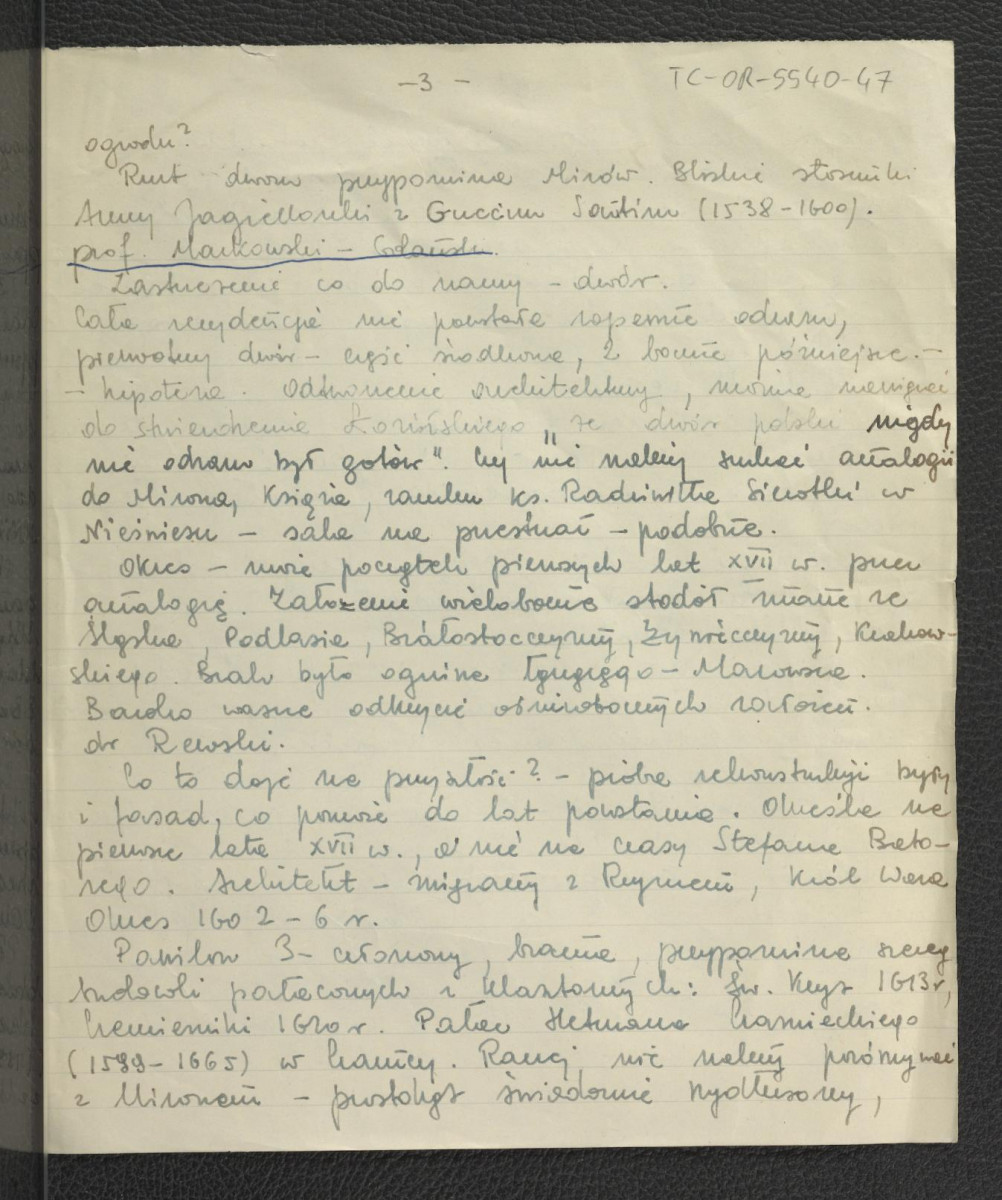 -3-
TC-OR-5540-47
ogrodu?
Rzut dworu przypomina Mirów. Bliskie stosunki
Anny Jagiellonki z Guccim Santim (1538-1600).
prof. Małkowski - Gdańsk.
Zastrzeżenie co do nazwy - dwór.
Cała rezydencja nie powstała zapewne odrazu,
pierwotny dwór - część środkowa, 2 boczne późniejsze. -
- hipoteza. Odtworzenie architektury, można nawiązać
do stwierdzenia Łozińskiego, że dwór polski nigdy
nie odrazu był gotów". Czy nie należy szukać analogii
do Mirowa, Książa, zamku ks. Radziwiłła Sierotki w
Nieświeżu - sala na przestrzał - podobne.
Okres - może początek pierwszych lat XVII w. przez
analogię. Założenie wieloboczne stodół znane ze
Śląska, Podlasia, Białostocczyzny, Krakow-
skiego. Brak było ogniwa łączącego - Mazowsza.
Bardzo ważne odkrycie ośmiobocznych założeń.
dr Rewski.
Co to daje na przyszłość? - próba rekonstrukcji bryły
i fasad, co pomoże do lat powstania. Określa na
pierwsze lata XVII w., a nie na czasy Stefana Bato-
rego. Architekt - związany z Rzymem, Król Waza
Okres 1602-6 r.
Pawilon 3-członowy, brama, przypomina szereg
budowli pałacowych i klasztornych: Św. Krzyż 1613r,
Czemierniki 1620r. Pałac Hetmana Czarnieckiego
(1599-1665) w Czarncy. Raczej nie należy porównywać
z Mirowem - prostokąt świadomie wydłużony,